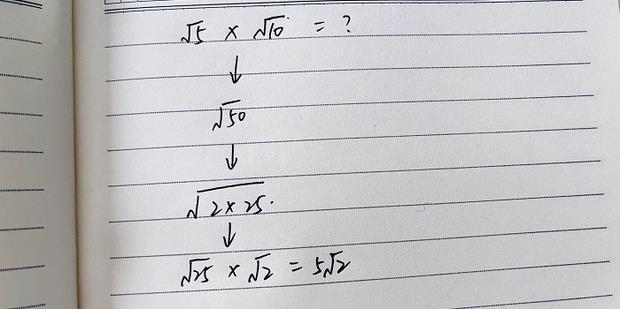 √5 × √10 = ?
↓
√50
↓
√2×25
↓
√25 × √2 = 5√2